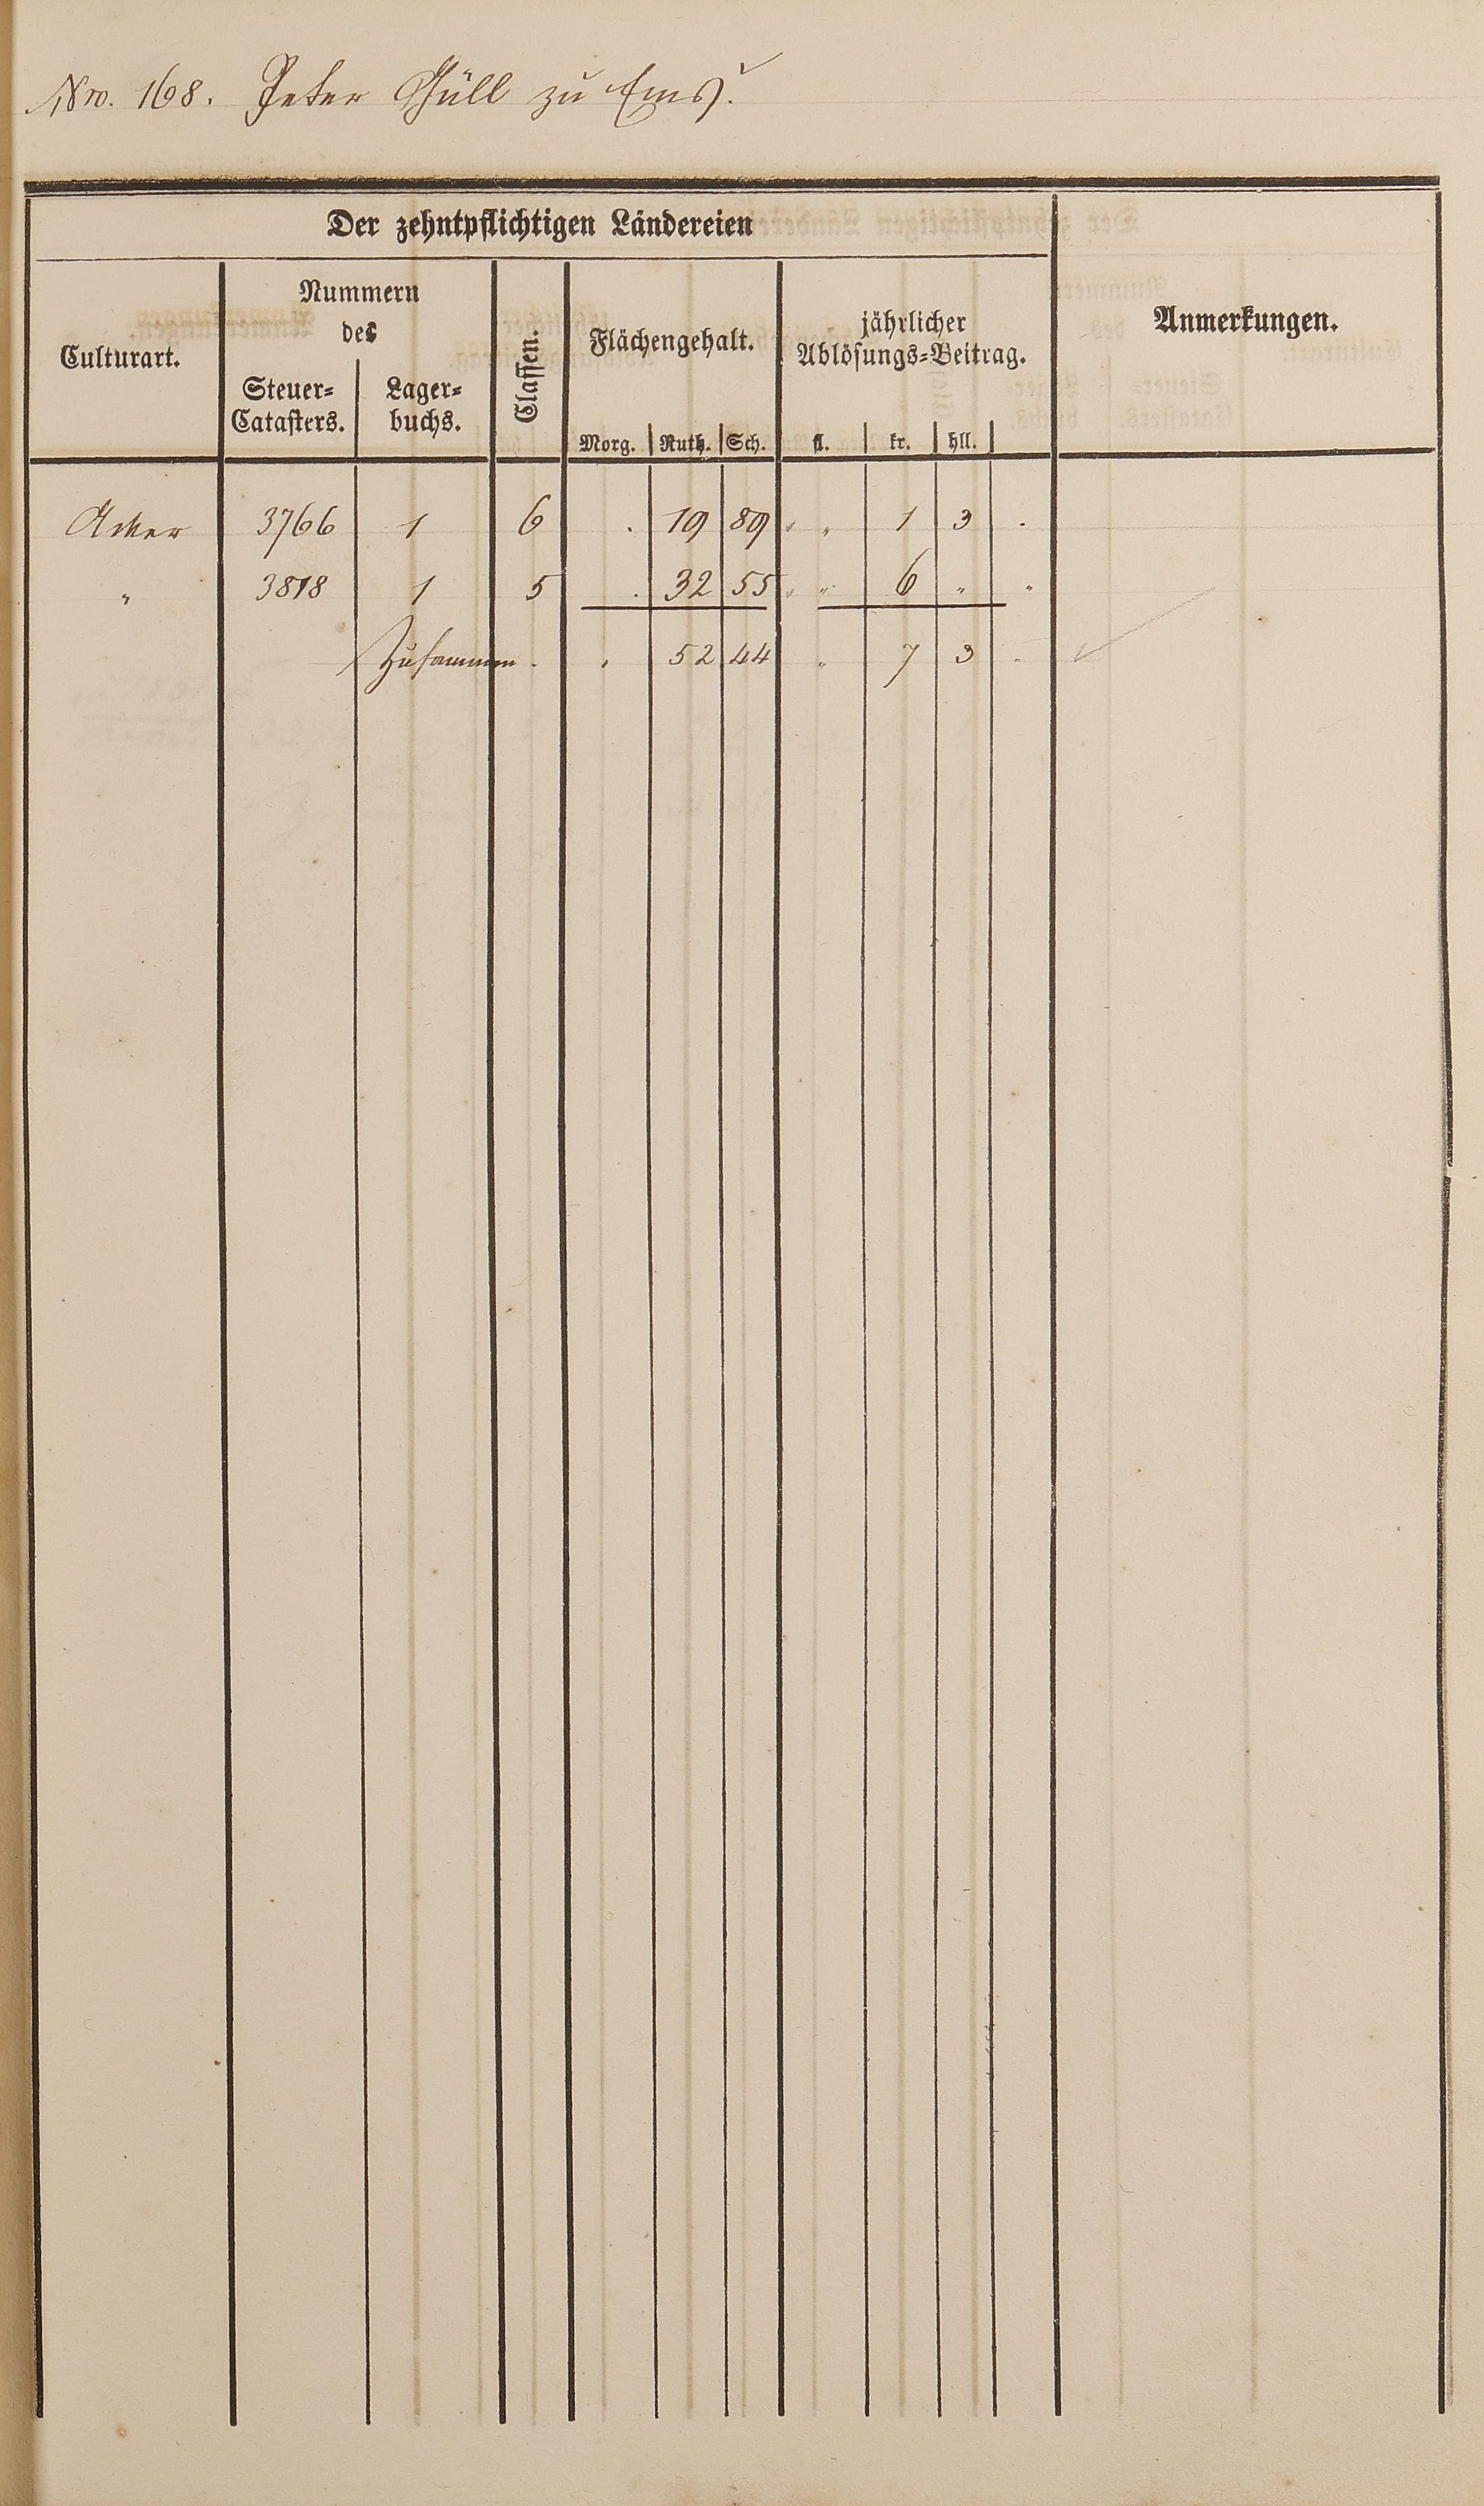 Nro. 168. Peter Güll zu Ems.
Der zehntpflichtigen Ländereien
Culturart.
Nummern
des
Steuer=
Catasters.
Lager=
buchs.
Classen.
Flächengehalt.
Morg. Ruth. Sch.
jährlicher
Ablösungs=Beitrag.
fl. kr. hll.
Anmerkungen.
Acker 3766 1 6 . 19 89 " 1 3 .
" 3818 1 5 . 32 55 " 6 " "
Zusammen . . 52 44 " 7 3 .